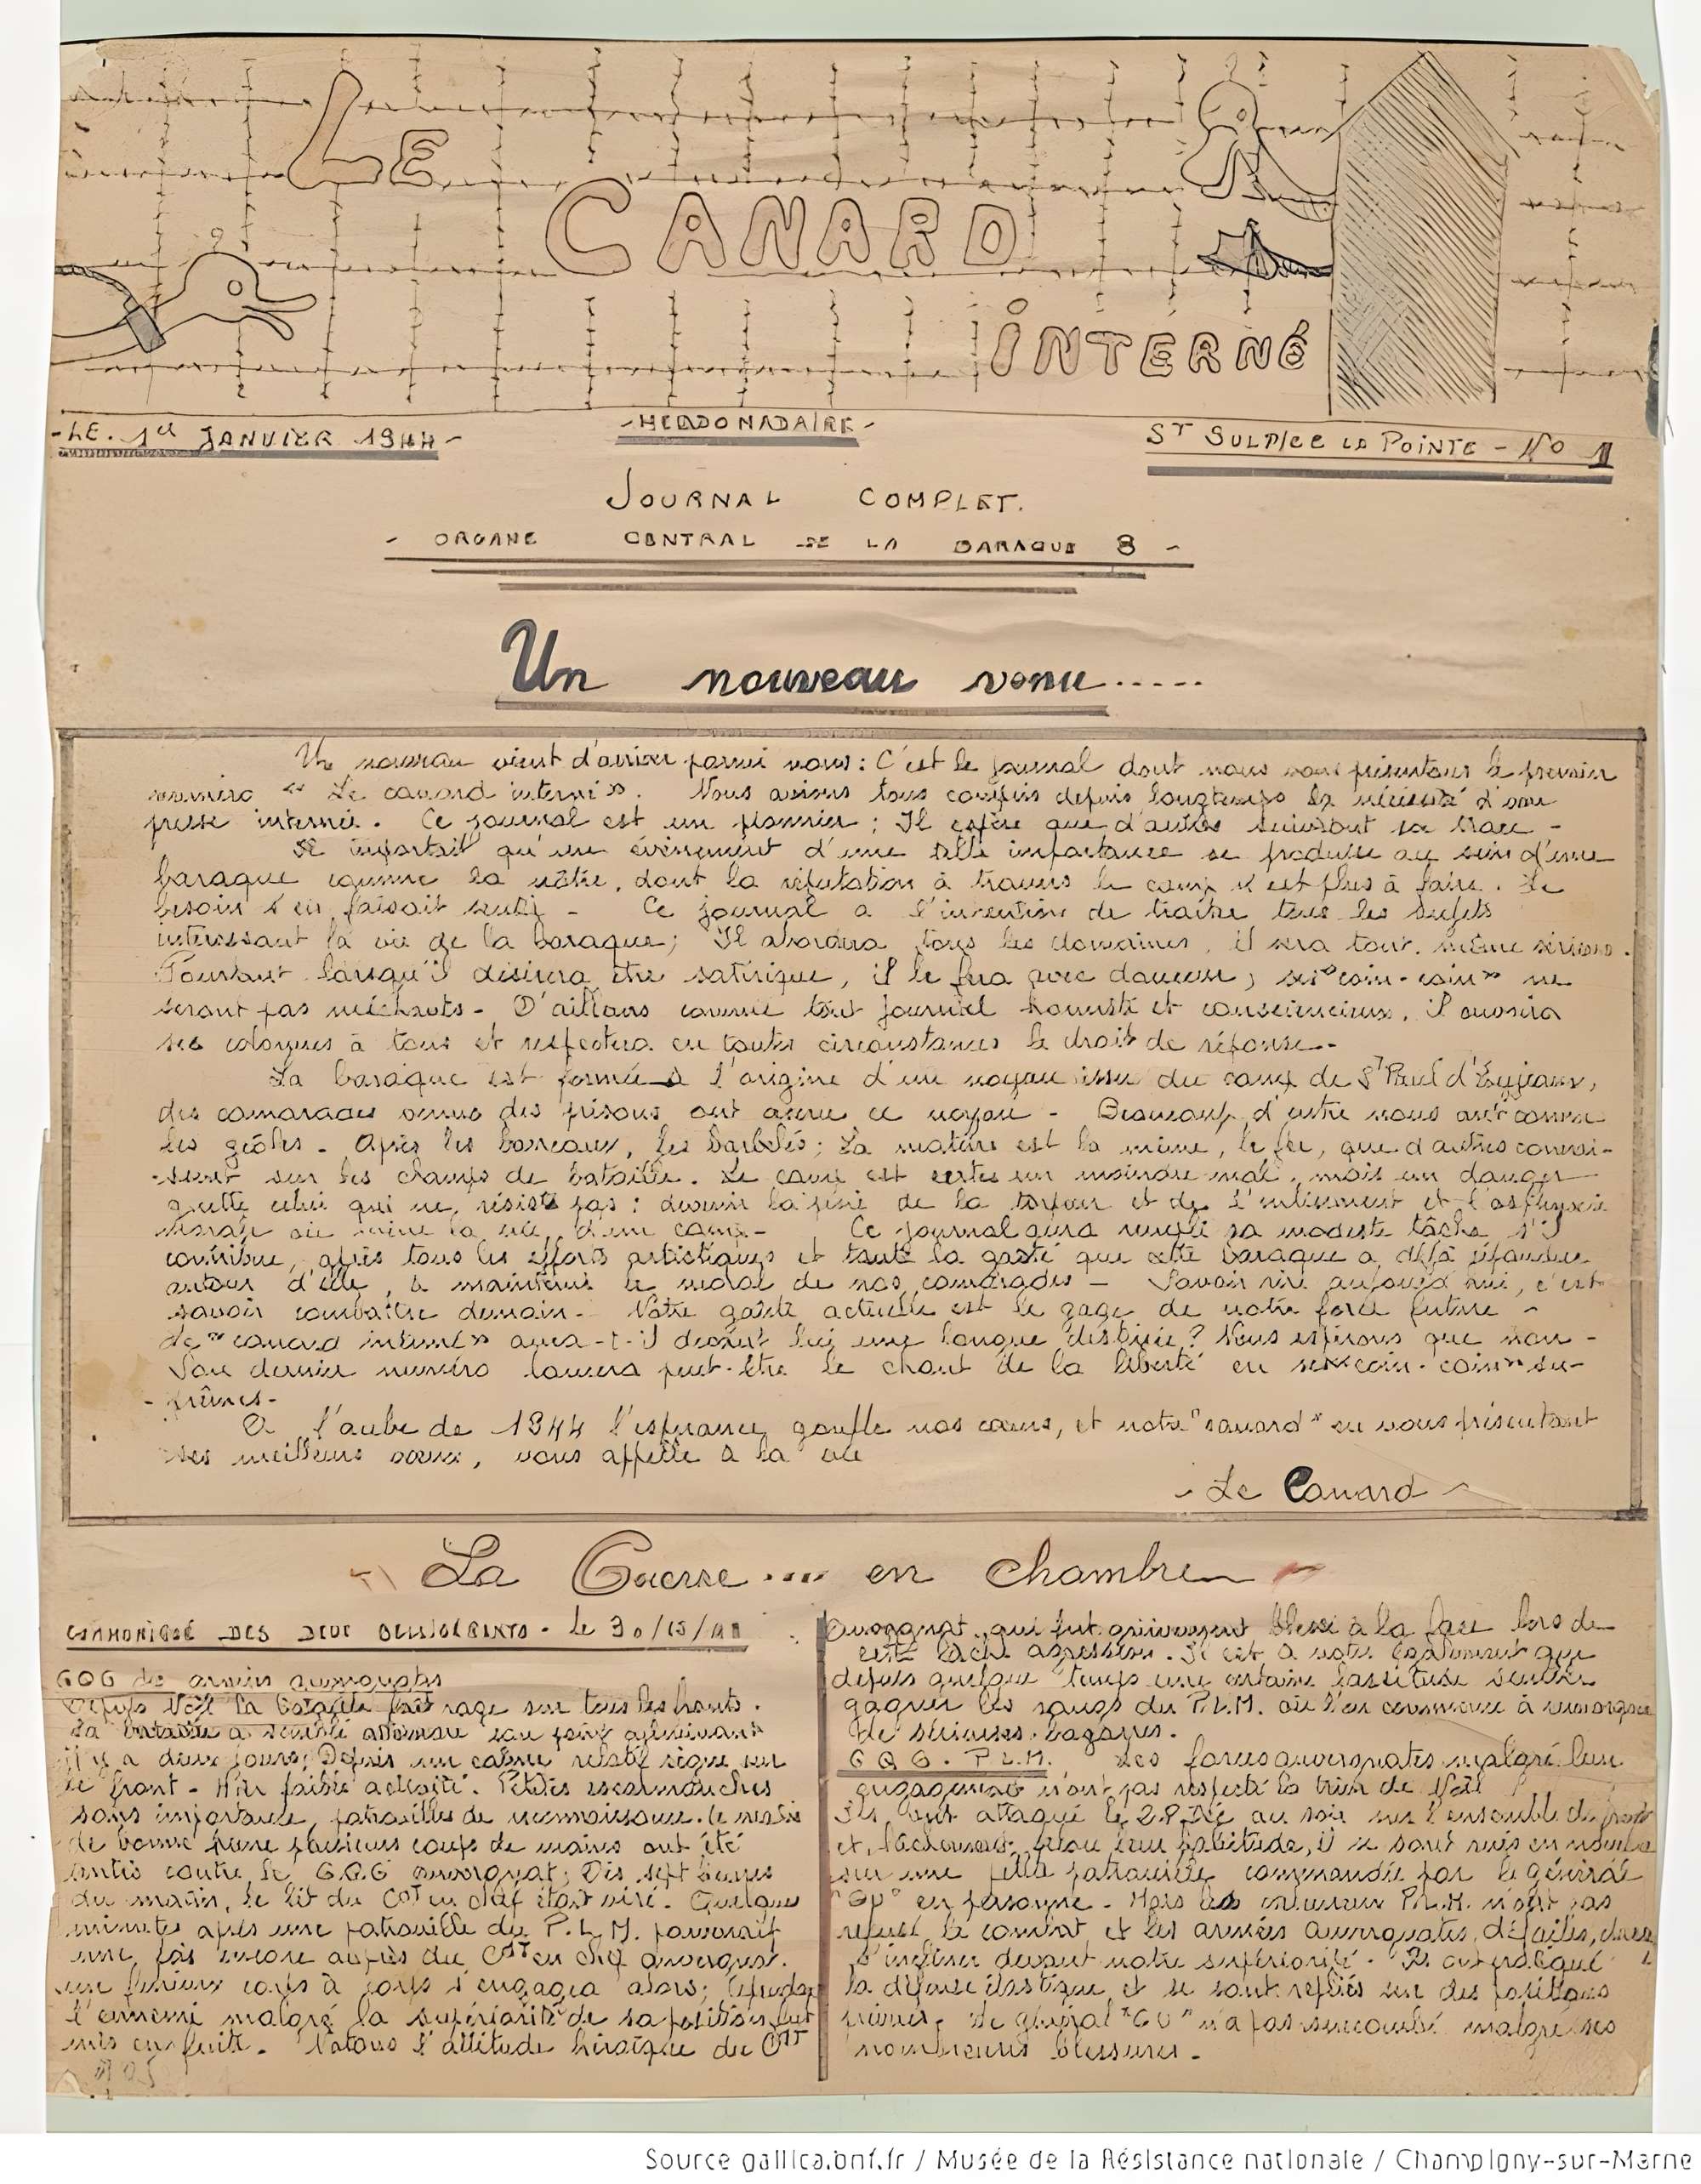 LE
CANARD
INTERNÉ
-LE. 1er JANVIER 1944-
-HEBDOMADAIRE-
ST SULPICE LA POINTE - No 1
JOURNAL COMPLET.
- ORGANE CENTRAL DE LA BARAQUE 8 -
Un nouveau venu.....
Un nouveau vient d'arriver parmi nous: C'est le journal dont nous vous présentons le premier
numéro "Le canard interné". Nous avions tous compris depuis longtemps la nécessité d'une
presse internée. Ce journal est un pionnier; Il espère que d'autres suivront sa trace -
Il importait qu'un événement d'une telle importance se produise au sein d'une
baraque comme la nôtre, dont la réputation à travers le camp n'est plus à faire. Le
besoin s'en faisait sentir - Ce journal a l'intention de traiter tous les sujets
intéressant la vie de la baraque; Il abordera tous les domaines, il sera tout. même sérieux.
Pourtant lorsqu'il désirera être satirique, il le fera avec douceur; ses "coin-coin" ne
seront pas méchants - D'ailleurs comme tout journal honnête et consciencieux, il ouvrira
ses colonnes à tous et respectera en toutes circonstances le droit de réponse.-
La baraque est formée à l'origine d'un noyau issu du camp de St Paul d'Eyjeaux,
des camarades venus des prisons ont accru ce noyau - Beaucoup d'entre nous ont connu
les geôles - Après les barreaux, les barbelés; La matière est la même, le fer, que d'autres connai-
-ssent sur les champs de bataille. Le camp est certes un moindre mal, mais un danger
guette celui qui ne résiste pas: devenir la proie de la torpeur et de l'enlisement et l'asphyxie
morale où mène la vie d'un camp - Ce journal aura rempli sa modeste tâche s'il
contribue, après tous les efforts artistiques et toute la gaîté que cette baraque a déjà répandue
autour d'elle, à maintenir le moral de nos camarades - Savoir rire aujourd'hui, c'est
savoir combattre demain - Notre gaîté actuelle est le gage de notre force future -
Le "canard interné" aura-t-il devant lui une longue destinée? Nous espérons que non -
Son dernier numéro lancera peut-être le chant de la liberté en ses "coin-coin" su-
-prêmes-
A l'aube de 1944 l'espérance gonfle nos cœurs, et notre "canard" en vous présentant
ses meilleurs vœux, vous appelle à la vie
- Le Canard -
La Guerre.... en chambre
COMMUNIQUÉ DES DEUX BELLIGÉRANTS - le 30/12/
GQG des armées auvergnates
Depuis Noël la bataille fait rage sur tous les fronts.
La bataille a semblé atteindre son point culminant
il y a deux jours; Depuis un calme relatif règne sur
le front - Hier faible activité. Petites escarmouches
sans importance, patrouilles de reconnaissance. Ce matin
de bonne heure plusieurs coups de mains ont été
tentés contre le G.Q.G auvergnat; Dès sept heures
du matin, le lit du Ct en chef était viré. Quelques
minutes après une patrouille du P.L.M. parvenait
une fois encore auprès du Ct en chef auvergnat.
un furieux corps à corps s'engagea alors; Cependant
l'ennemi malgré la supériorité de sa position fut
mis en fuite. Notons l'attitude héroïque du Ct
auvergnat, qui fut grièvement blessé à la face lors de
cette lâche agression. Il est à noter également que
depuis quelque temps une certaine lassitude semble
gagner les rangs du P.L.M. où l'on commence à remarquer
de sérieuses bagarres.
G Q G. P.L.M. Les forces auvergnates malgré leur
engagement n'ont pas respecté la trêve de Noël
Ils ont attaqué le 28 Déc au soir sur l'ensemble du front
et, lâchement, selon leur habitude, ils se sont mis en nombre
sur une petite patrouille commandée par le général
"GU" en personne - Mais les valeureux P.L.M. n'ont pas
refusé le combat et les armées auvergnates, défaites, durent
s'incliner devant notre supériorité - Ils ont pratiqué
la défense élastique et se sont repliés sur des positions
prévues. Le général "GU" n'a pas succombé malgré ses
nombreuses blessures -
Source gallica.bnf.fr / Musée de la Résistance nationale / Champigny-sur-Marne